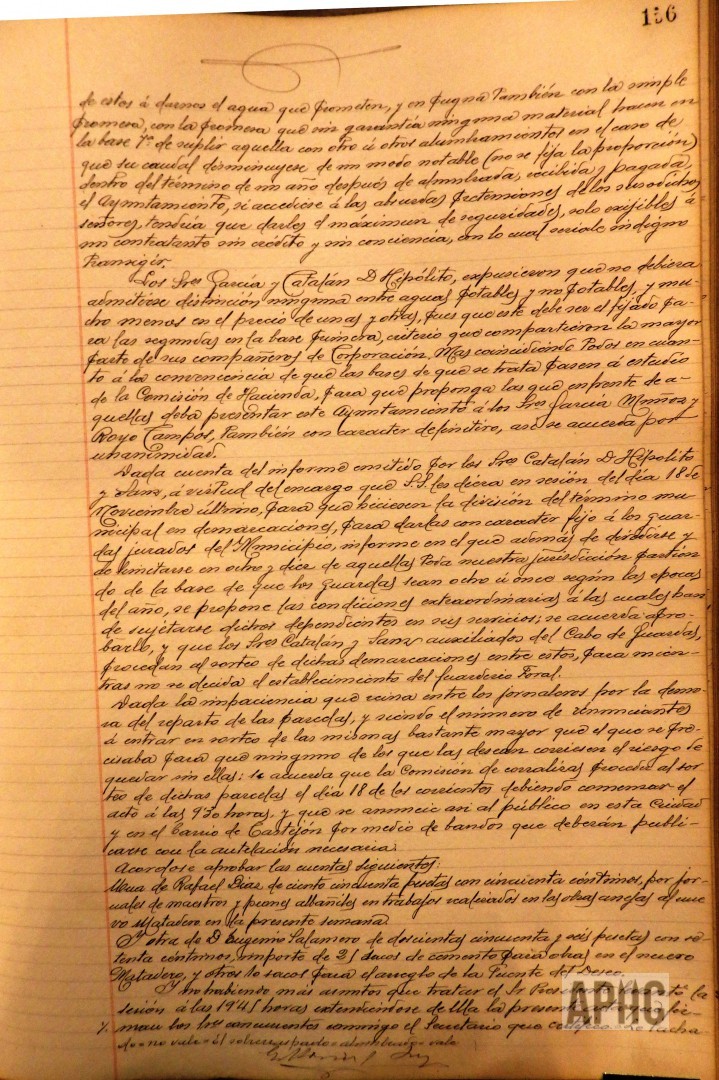 156
de estos á darnos el agua que prometen, y en pugna también con la simple
promesa, con la promesa que sin garantía ninguna material hacen en
la base 7ª de suplir aquella con otro ú otros alumbramientos en el caso de
que su caudal disminuyese de un modo notable (no se fija la proporción)
dentro del término de un año después de alumbrada, recibida y pagada,
el Ayuntamiento, si accediese á las absurdas pretensiones de los susodichos
señores, tendría que darles el máximun de seguridades, solo exijibles á
un contratante sin crédito y sin conciencia, con lo cual seriale indigno
transigir.
Los Sres García y Catalán D Hipólito, expusieron que no debiera
admitirse distinción ninguna entre aguas potables y no potables, y mu-
cho menos en el precio de unas y otras, pues que este debe ser el fijado pa-
ra las segundas en la base primera, criterio que compartieron la mayor
parte de sus compañeros de Corporación. Mas coincidiendo todos en cuan-
to á la conveniencia de que las bases de que se trata pasen á estudio
de la Comisión de Hacienda, para que proponga las que enfrente de a-
quellas deba presentar este Ayuntamiento á los Sres García Muñoz y
Royo Campos, también con caracter definitivo, así se acuerda por
unanimidad.
Dada cuenta del informe emitido por los Sres Catalán D Hipólito
y Sanz, á virtud del encargo que S.S. les diera en sesión del día 18 de
Noviembre último, para que hiciesen la división del término mu-
nicipal en demarcaciones, para darlas con caracter fijo á los guar-
das jurados del Municipio, informe en el que además de dividirse y
delimitarse en ocho y diez de aquellas toda nuestra jurisdición partien-
do de la base de que los guardas sean ocho ú once según las epocas
del año, se propone las condiciones extraordinarias á las cuales han
de sujetarse dichos dependientes en sus servicios; se acuerda apro-
barlo, y que los Sres Catalán y Sanz auxiliados del Cabo de Guardas,
procedan al sorteo de dichas demarcaciones entre estos, para mien-
tras no se decida el establecimiento del Guarderio Foral.
Dada la impaciencia que reina entre los jornaleros por la demo-
ra del reparto de las parcelas, y siendo el número de renunciantes
á entrar en sorteo de las mismas bastante mayor que el que se pre-
cisaba para que ninguno de los que las desean corriesen el riesgo de
quedar sin ellas; se acuerda que la Comisión de corralizas proceda al sor-
teo de dichas parcelas el día 18 de los corrientes debiendo comenzar el
acto á las 9'30 horas, y que se anuncie asi al público en esta Ciudad
y en el Barrio de Castejón por medio de bandos que deberán publi-
carse con la antelación necesaria.
Acordose aprobar las cuentas siguientes:
Una de Rafael Díaz de ciento cincuenta pesetas con cincuenta céntimos, por jor-
nales de maestros y peones albañiles en trabajos realizados en las obras anejas al nue-
vo Matadero en la presente semana.
Y otra de D Eugenio Salamero de doscientas cincuenta y seis pesetas con se-
tenta céntimos, importe de 25 sacos de cemento para obras en el nuevo
Matadero, y otros 10 sacos para el arreglo de la Fuente del
Y no habiendo más asuntos que tratar el Sr Presidente levantó la
sesión á las 19'45 horas extendiéndose de ella la presente
man los Sres concurrentes conmigo el Secretario que
do=no vale=El sobrerraspado=alumbrada=vale
APHC